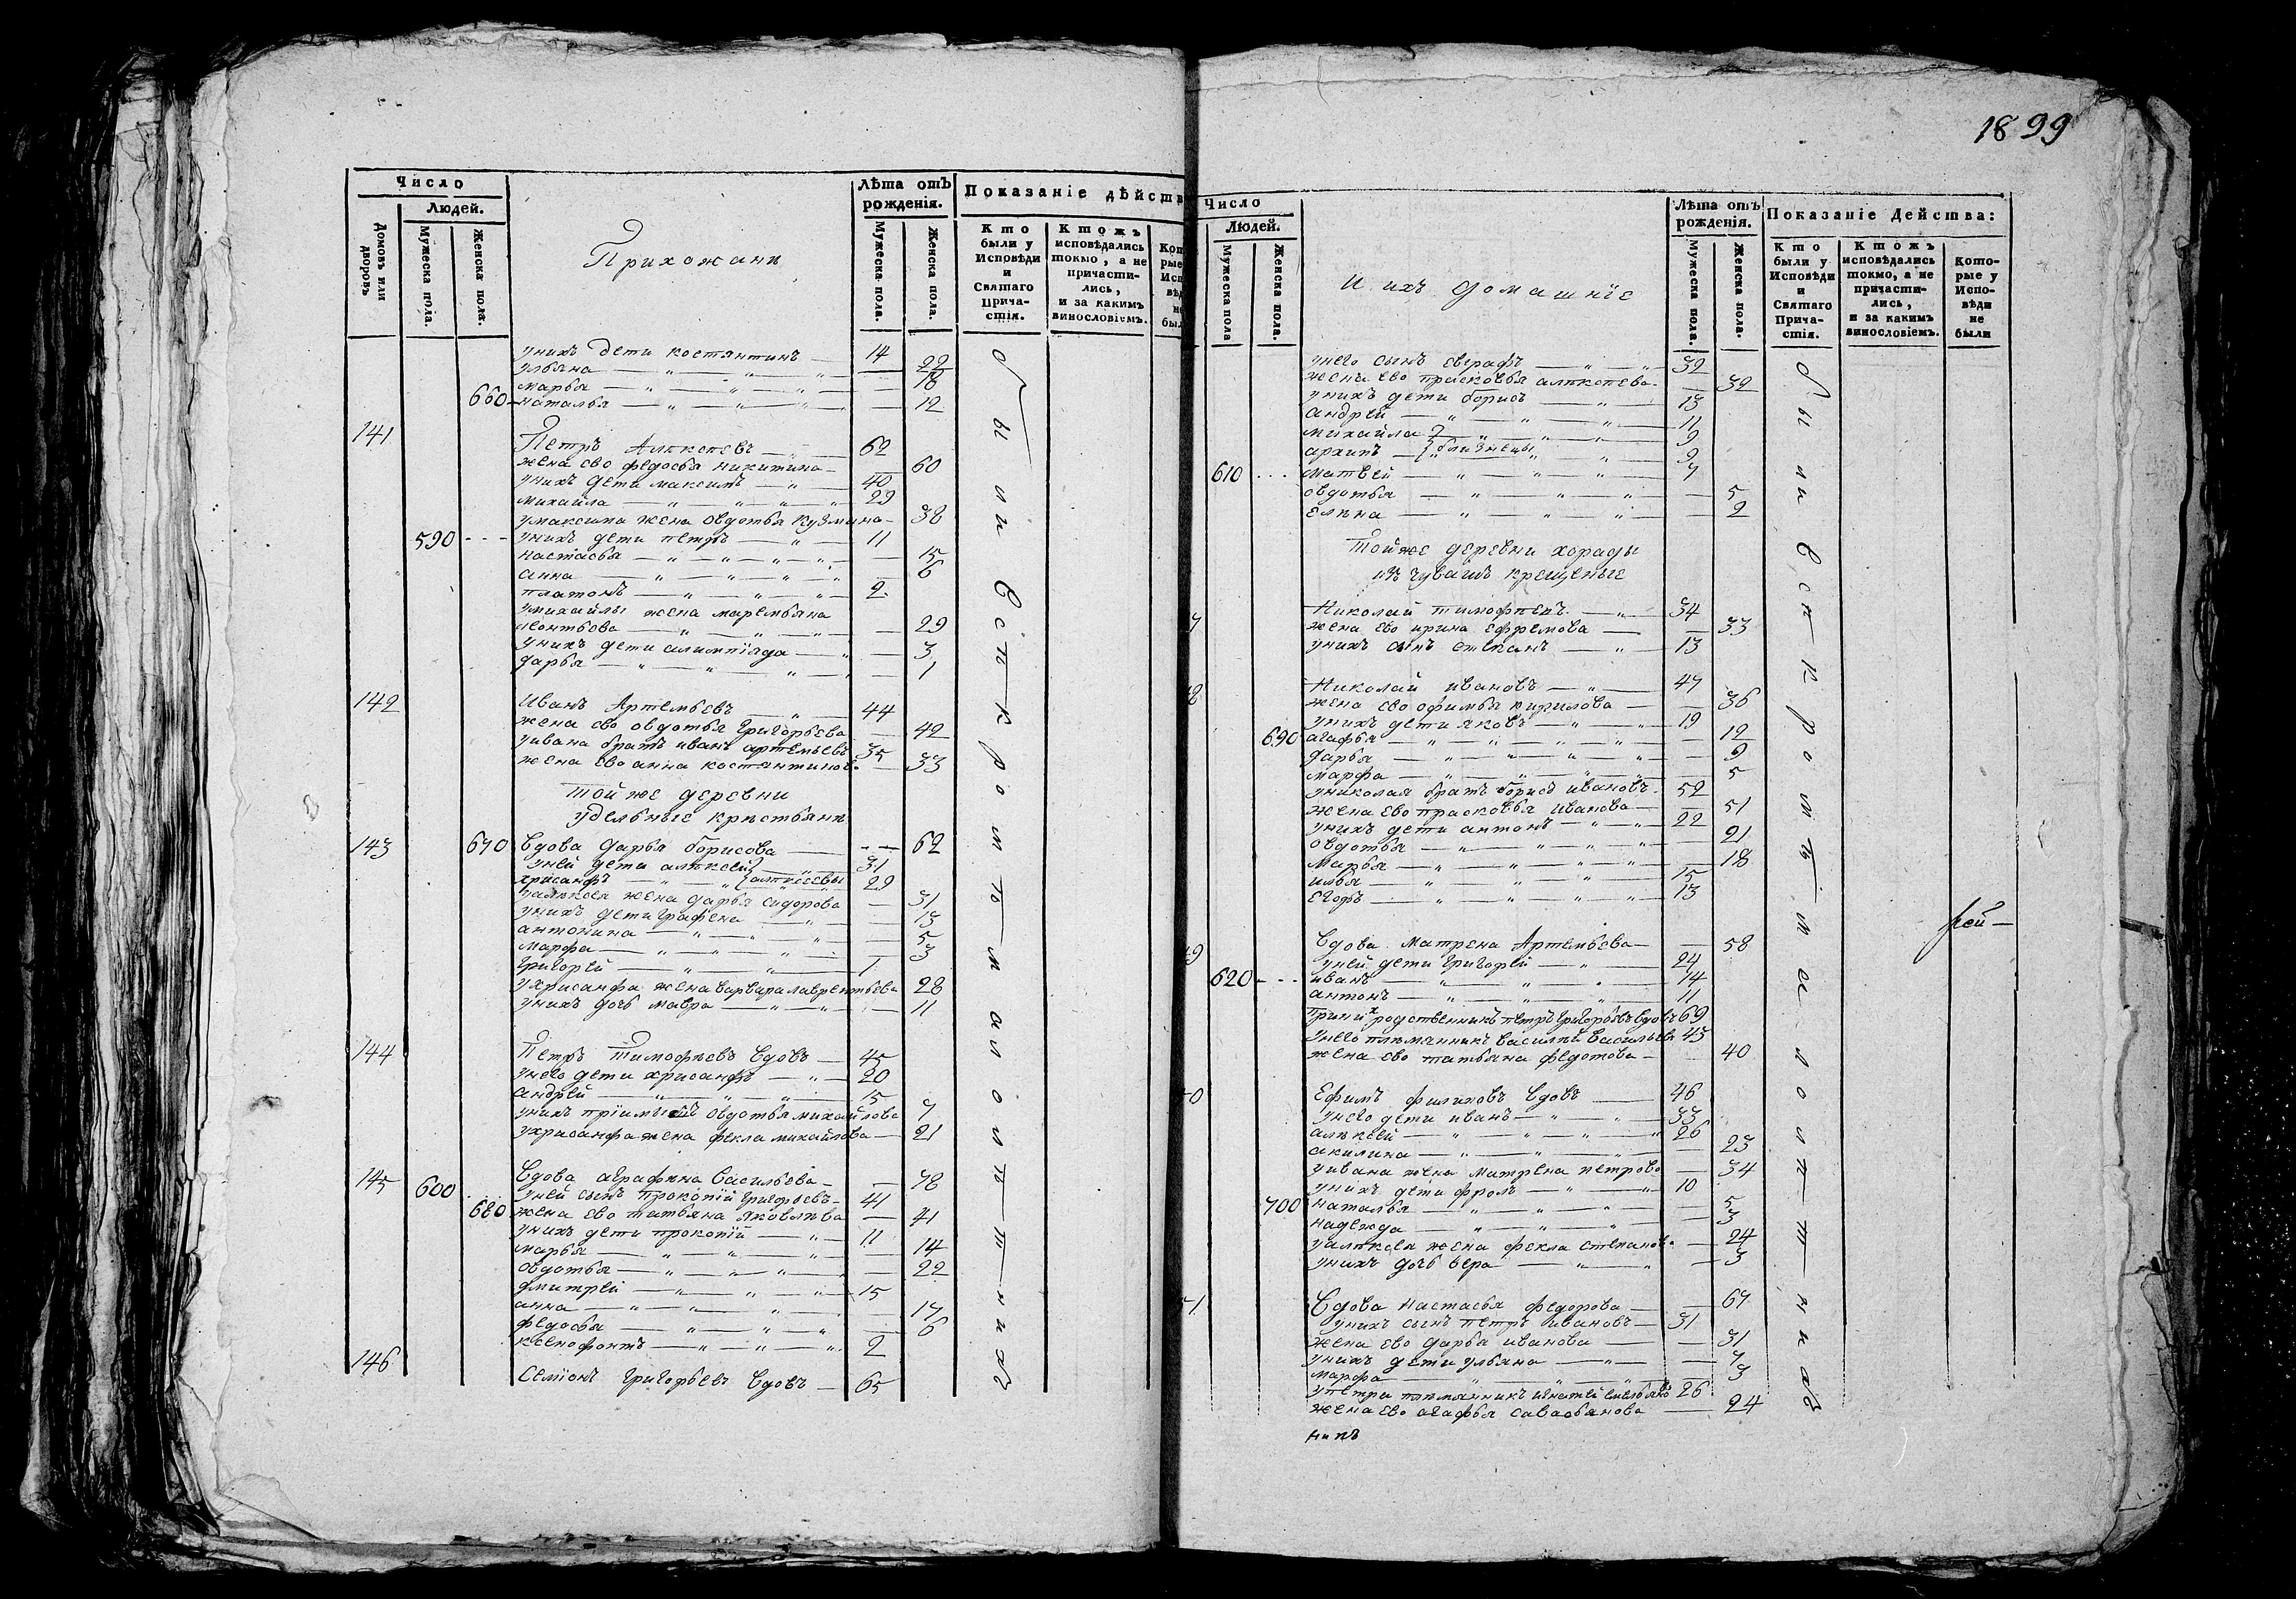 Число
Людей.
Домовъ или дворовъ
Мужеска пола.
Женска пола.
Прихожанѣ
Лѣта отъ рожденія.
Мужеска пола.
Женска пола.
Показаніе дѣйств
Кто были у Исповѣди и Святаго Прича-стія.
Ктожъ исповѣдались токмо, а не причасти-лись, и за какимъ винословіемъ.
унихъ дети костянтинъ — 14
ульяна — 22
марья — 18
660 наталья — 12
141 Петръ Алѣксѣевъ — 62
жена ево федосья никитина — 60
унихъ дети максимъ — 40
михайла — 29
умаксима жена овдотья кузмина — 38
590 унихъ дети петръ — 11
настасья — 15
анна — 6
платонъ — 2
умихайлы жена маремьяна
леонтьева — 29
унихъ дети алимпіяда — 3
дарья — 1
142 Иванъ Артемьевъ — 44
жена ево овдотья Григорьева — 42
уивана братъ иванъ артемьевъ 35
жена ево анна костянтинова — 33
Той же деревни
удельные крѣстьянѣ
143 670 Вдова дарья борисова — 62
уней дети алѣксей — 31
хрисанфъ алѣксеевы 29
уалѣксея жена дарья сидорова — 31
унихъ дети графена — 13
антонина — 5
марфа — 3
григорей — 1
ухрисанфа жена варвара лаврентьева 28
унихъ дочь мавра — 11
144 Петръ Тимофѣевъ вдовъ — 45
унего дети хрисанфъ — 20
андрей — 15
унихъ пріимышъ овдотья михайлова 7
ухрисанфа жена фекла михайлова — 21
145 Вдова аграфѣна Васильева — 78
600 уней сынъ прокопій григорьевъ — 41
680 жена ево татьяна яковлѣва — 41
унихъ дети прокопій — 11
марья — 14
овдотья — 22
дмитрей — 15
анна — 17
федосья — 6
ксенофонтъ — 2
146 Семіонъ Григорьевъ вдовъ — 65
были вси кромѣ малолѣтнихъ
1899
Число
Людей.
Мужеска пола
Женска пола.
И ихъ домашніе
Лѣта отъ рожденія.
Мужеска пола.
Женска пола.
Показаніе Действа:
Кто были у Исповѣди и Святаго Прича-стія.
Ктожъ исповѣдались токмо, а не причасти-лись, и за какимъ винословіемъ.
Кото-рые у Испо-вѣди не были
унего сынъ евграфъ — 32
жена ево прасковья алѣксѣева — 32
унихъ дети борисъ — 13
андрей — 11
михайла — 9
архипъ близнецы 9
610 матвей — 7
овдотья — 5
елѣна — 2
Тойже деревни хорады
изъ чувашъ крещеные
7 Николай тимофѣевъ — 34
жена ево ирина ефремова — 33
унихъ сынъ степанъ — 13
8 Николай ивановъ — 47
жена ево офимья кирилова — 36
унихъ дети яковъ — 19
690 агафья — 12
дарья — 9
марфа — 5
униколая братъ борисъ ивановъ 52
жена ево прасковья иванова — 51
унихъ дети антонъ — 22
овдотья — 21
марья — 18
илья — 15
егоръ — 13
9 Вдова матрена Артемьева — 58
уней дети григорей — 24
620 иванъ — 14
антонъ — 11
при нихъ родственникъ петръ григорьевъ вдовъ 69
унего плѣмянникъ василей васильевъ 43
жена ево татьяна федотова — 40
0 Ефимъ филиповъ вдовъ — 46
унего дети иванъ — 33
алѣксей — 26
акилина — 23
уивана жена матрена петрова — 34
унихъ дети фролъ — 10
700 наталья — 5
надежда — 3
уалѣксея жена фекла степанова — 24
унихъ дочь вера — 3
1 Вдова настасья федорова — 67
унихъ сынъ петръ ивановъ — 31
жена ево дарья иванова — 31
унихъ дети ульяна — 7
марфа — 3
упетра плѣмянникъ игнатей емельяновъ 26
жена ево агафья савасьянова — 24
были вси кромѣ малолѣтнихъ